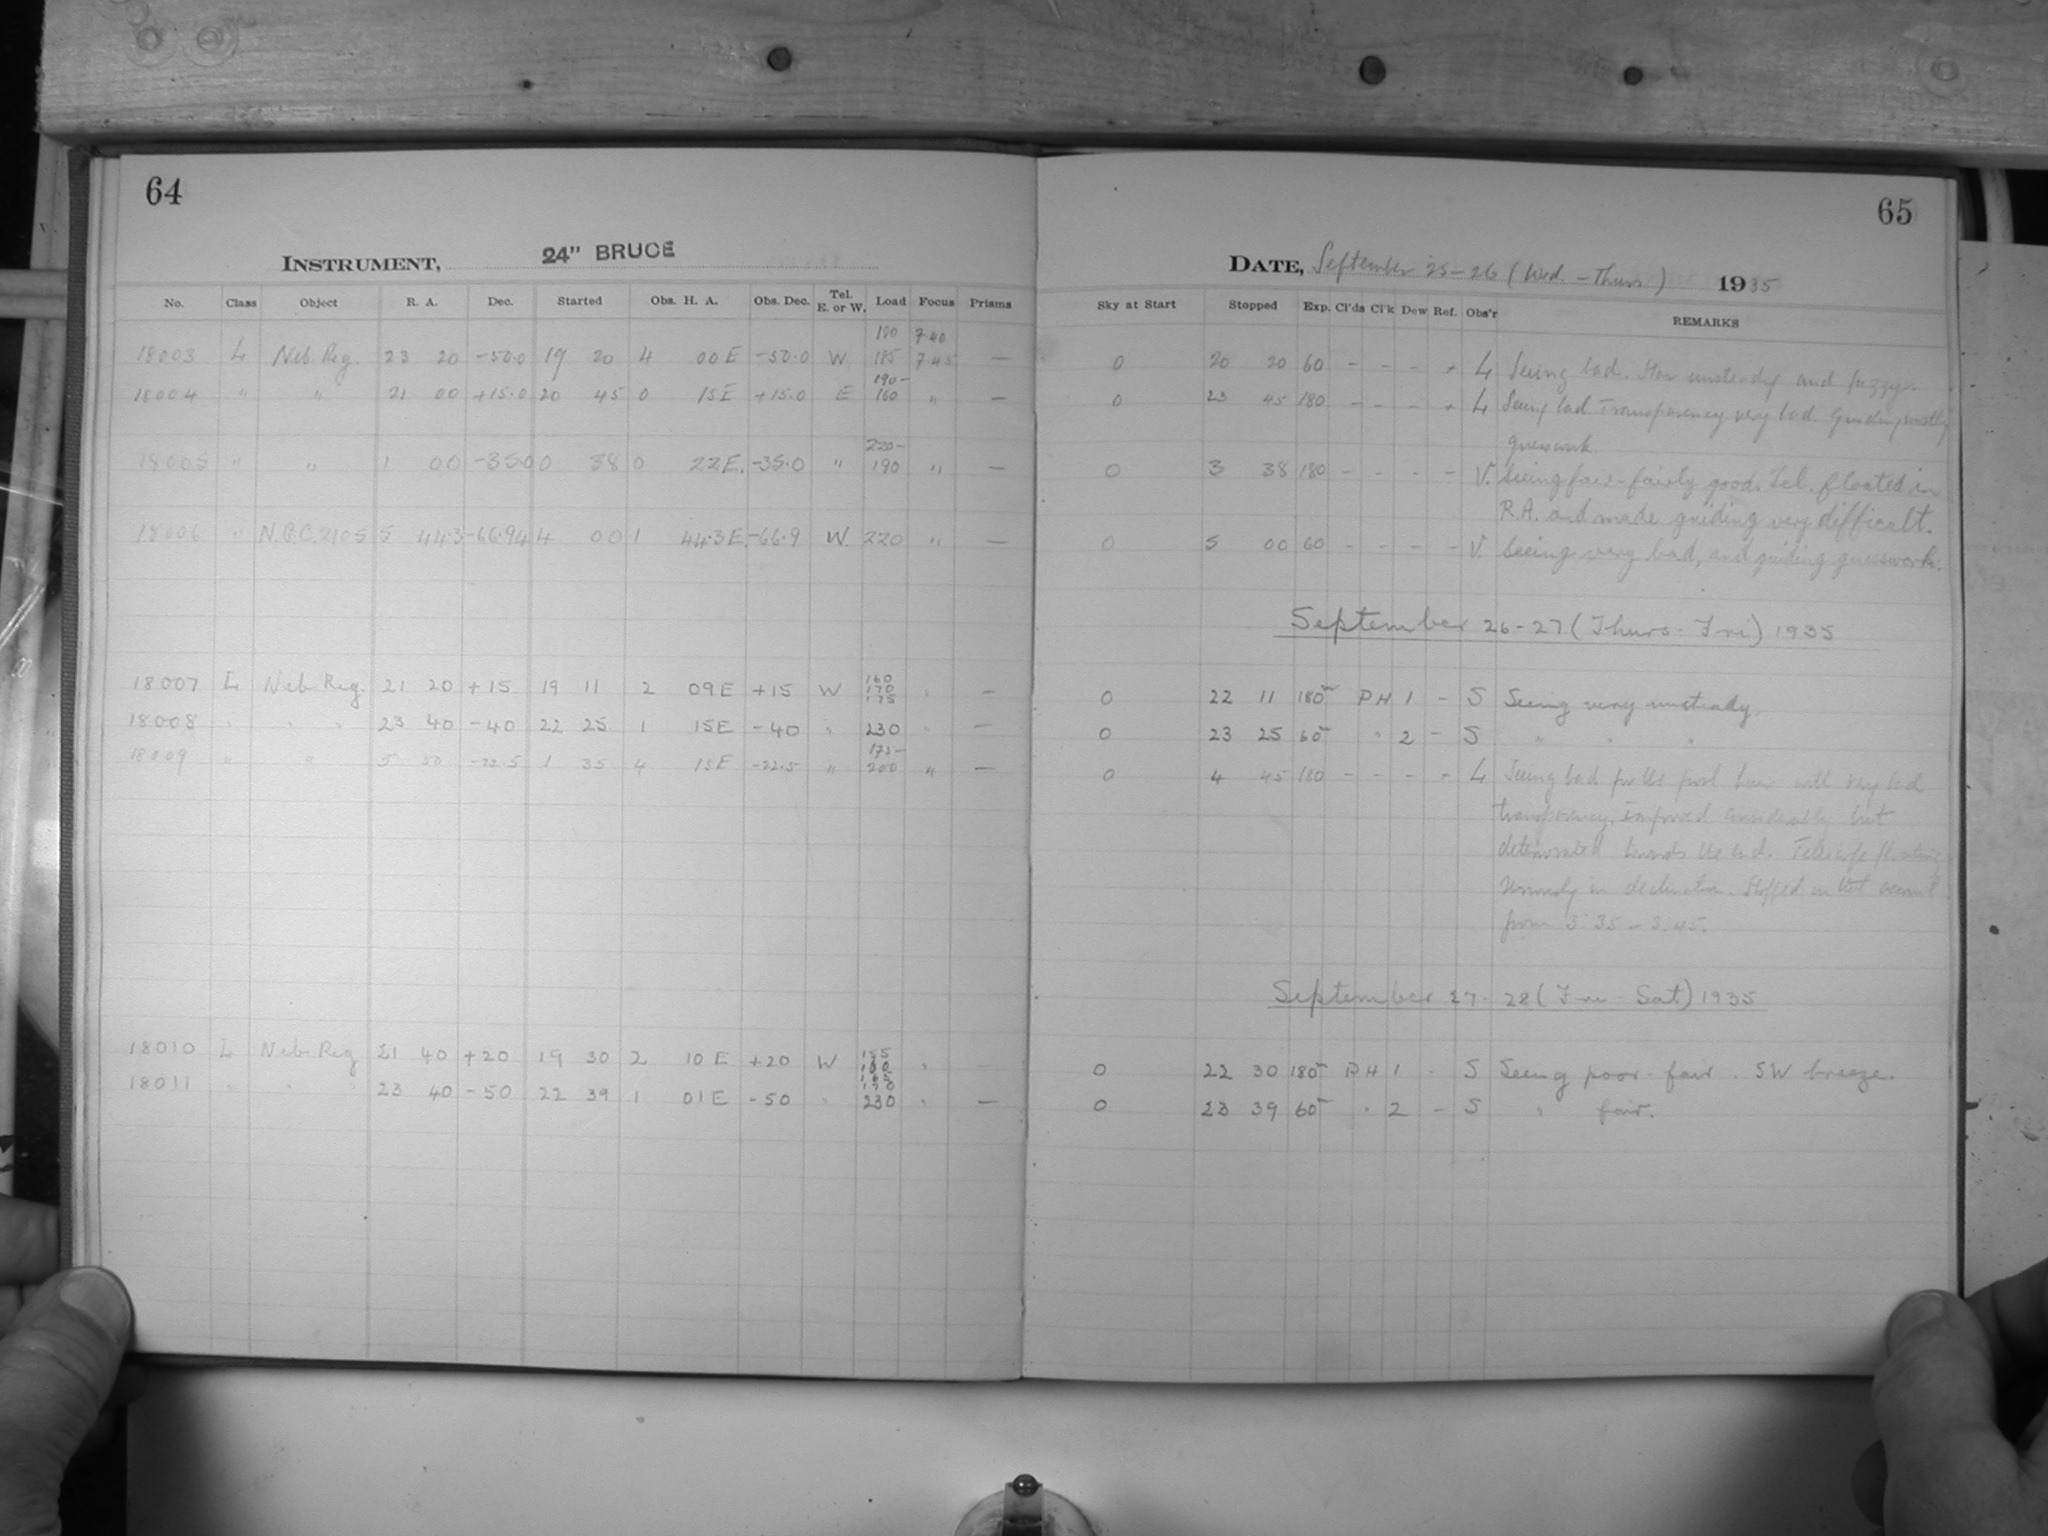 64
INSTRUMENT, 24" BRUCE
No. Class Object R. A. Dec. Started Obs. H. A. Obs. Dec. Tel. E. or W. Load Focus Prisms
180 7.40
18003 L Neb. Reg. 23 20 -50.0 19 20 4 00 E -50.0 W 185 7.45 —
190-
18004 " " 21 00 +15.0 20 45 0 15 E +15.0 E 160 " —
220-
18005 " " 1 00 -35.0 0 38 0 22 E. -35.0 " 190 " —
18006 " N.G.C. 2105 5 44.3 -66.9 4 4 00 1 44.3 E. -66.9 W. 220 " —
160
18007 L Neb. Reg. 21 20 +15 19 11 2 09 E +15 W 170 " —
175
18008 " " " 23 40 -40 22 25 1 15 E -40 " 230 " —
175-
18009 " " 5 50 -22.5 1 35 4 15 E -22.5 " 200 " —
155
18010 L Neb Reg 21 40 +20 19 30 2 10 E +20 W 160 " —
165
170
18011 " " " 23 40 -50 22 39 1 01 E -50 " 230 " —
65
DATE, September 25-26 (Wed. - Thurs.) 1935
Sky at Start Stopped Exp. Cl'ds Cl'k Dew Ref. Obs'r REMARKS
0 20 20 60 - - - - L Seeing bad. Star unsteady and fuzzy.
0 23 45 180 - - - - L Seeing bad. Transparency very bad. Guiding mostly
guesswork.
0 3 38 180 - - - - V. Seeing fair-fairly good. Tel. floated in
R.A. and made guiding very difficult.
0 5 00 60 - - - - V. Seeing very bad, and guiding guesswork.
September 26-27 (Thurs-Fri) 1935
0 22 11 180 P H 1 - S Seeing very unsteady.
0 23 25 60 " 2 - S " " "
0 4 45 180 - - - - L Seeing bad for the first hour with very bad
transparency, improved considerably but
deteriorated towards the end. Telescope floating
seriously in declination. Stopped on that account
from 3:35 - 3:45.
September 27-28 (Fri-Sat) 1935
0 22 30 180 P H 1 - S Seeing poor-fair. SW breeze.
0 23 39 60 " 2 - S " fair.